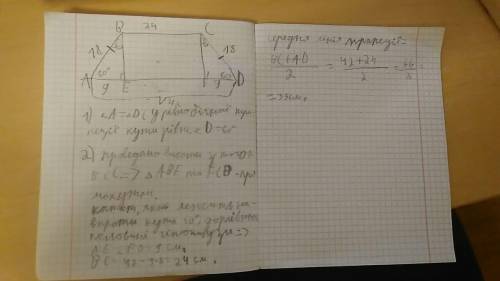 B 24 C
18 18
A 60° 60° D
9 E F 9
42
1) ∠A=∠D (у рівнобічній тра-
пеції кути рівні) ∠D=60°
2) проведемо висоти у
B і C => △ABE та FCD - пря
мокутні.
катет, який лежить на-
впроти кута 30°, дорівнює
половині гіпотенузи =>
AE = FD = 9 см.
BC = 42-9·2 = 24 см.
середня лінія трапеції-
BC+AD / 2 = 42+24 / 2 = 66 / 2
=33см.